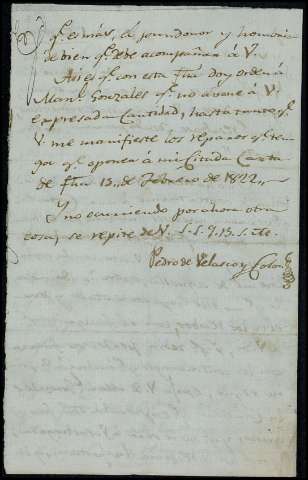 q.e es más, el pundonor y hombria
de bien q.e debe acompañar á V.
Asi es q.e con esta fha doy orden á
Man.l Gonzales q.e no abone á V.
expresada Cantidad, hasta tanto q.e
V. me manifieste los reparos q.e ten-
ga q.e oponer á mi Citada Carta
de fha 15,, de Febrero de 1822,,
Y no ocurriendo por ahora otra
cosa, se repite de V. S. S. q. B. S. M.
Pedro de Velasco y Colon